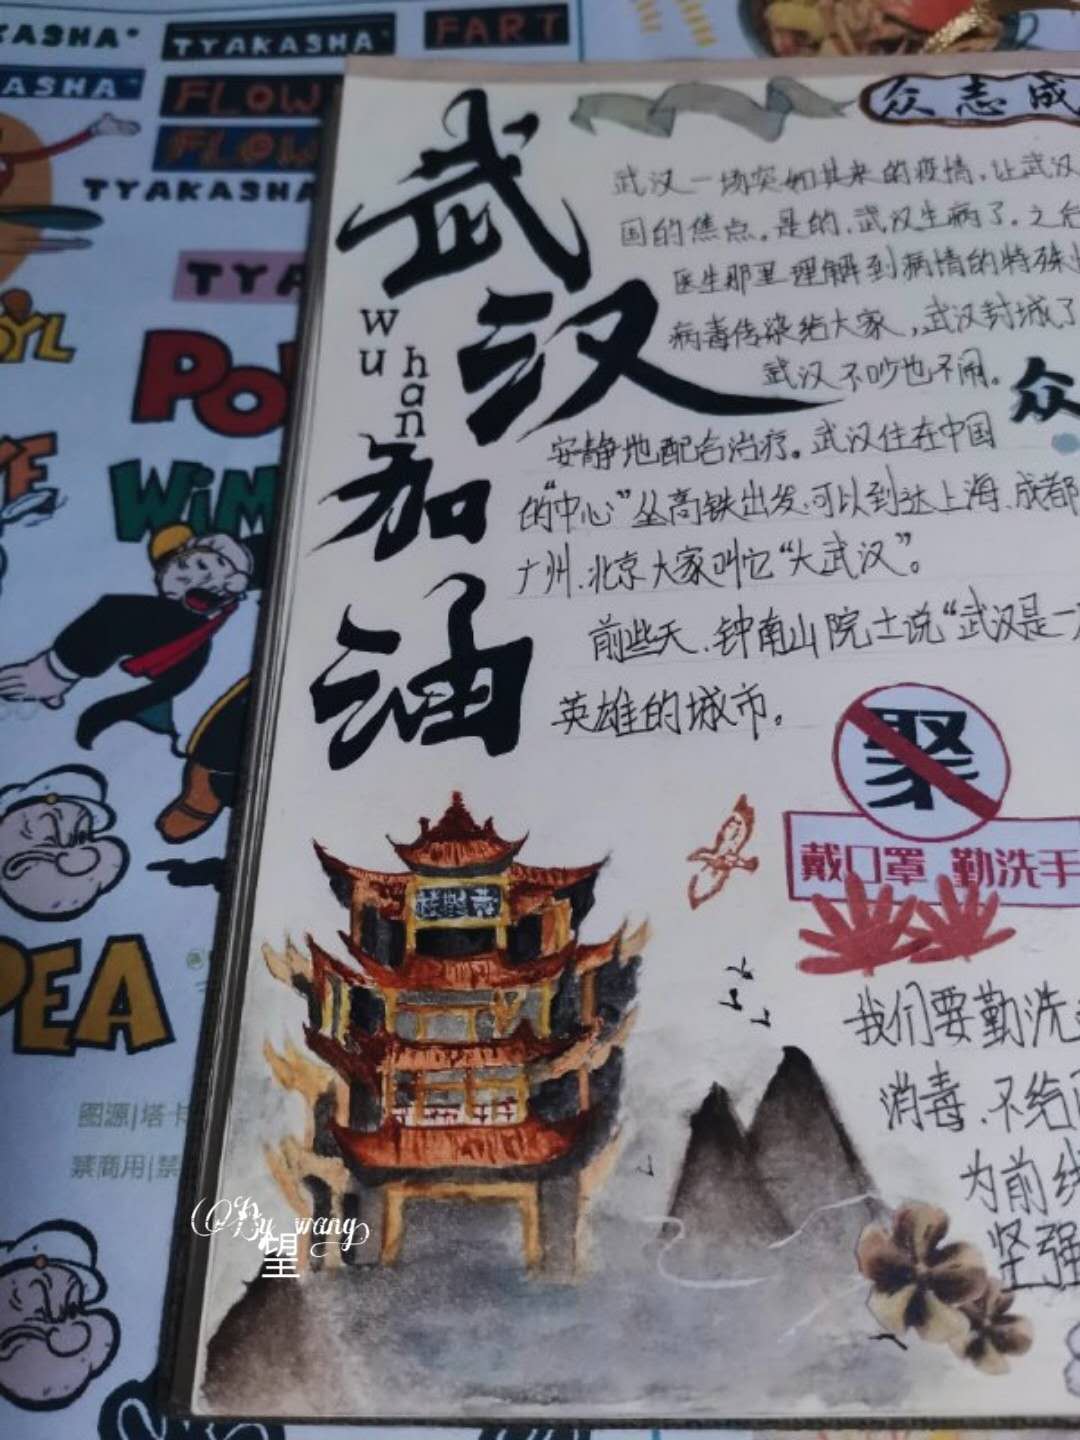 TYAKASHA
TYAKASHA
FART
ASHA
FLOW
FLOW
TYAKASHA
TYA
OYL
PO
YE
WIM
PEA
图源|塔卡
禁商用|禁
武汉
wuhan
加油
众志成
武汉一场突如其来的疫情,让武汉
国的焦点。是的,武汉生病了。之后
医生那里理解到病情的特殊
病毒传染给大家,武汉封城了
武汉不吵也不闹。
众
安静地配合治疗。武汉住在中国
的“中心”丛高铁出发,可以到达上海、成都
广州、北京大家叫它“大武汉”。
前些天,钟南山院士说“武汉是一
英雄的城市。
聚
戴口罩 勤洗手
我们要勤洗
消毒、不给
为前线
坚强
By wang
望